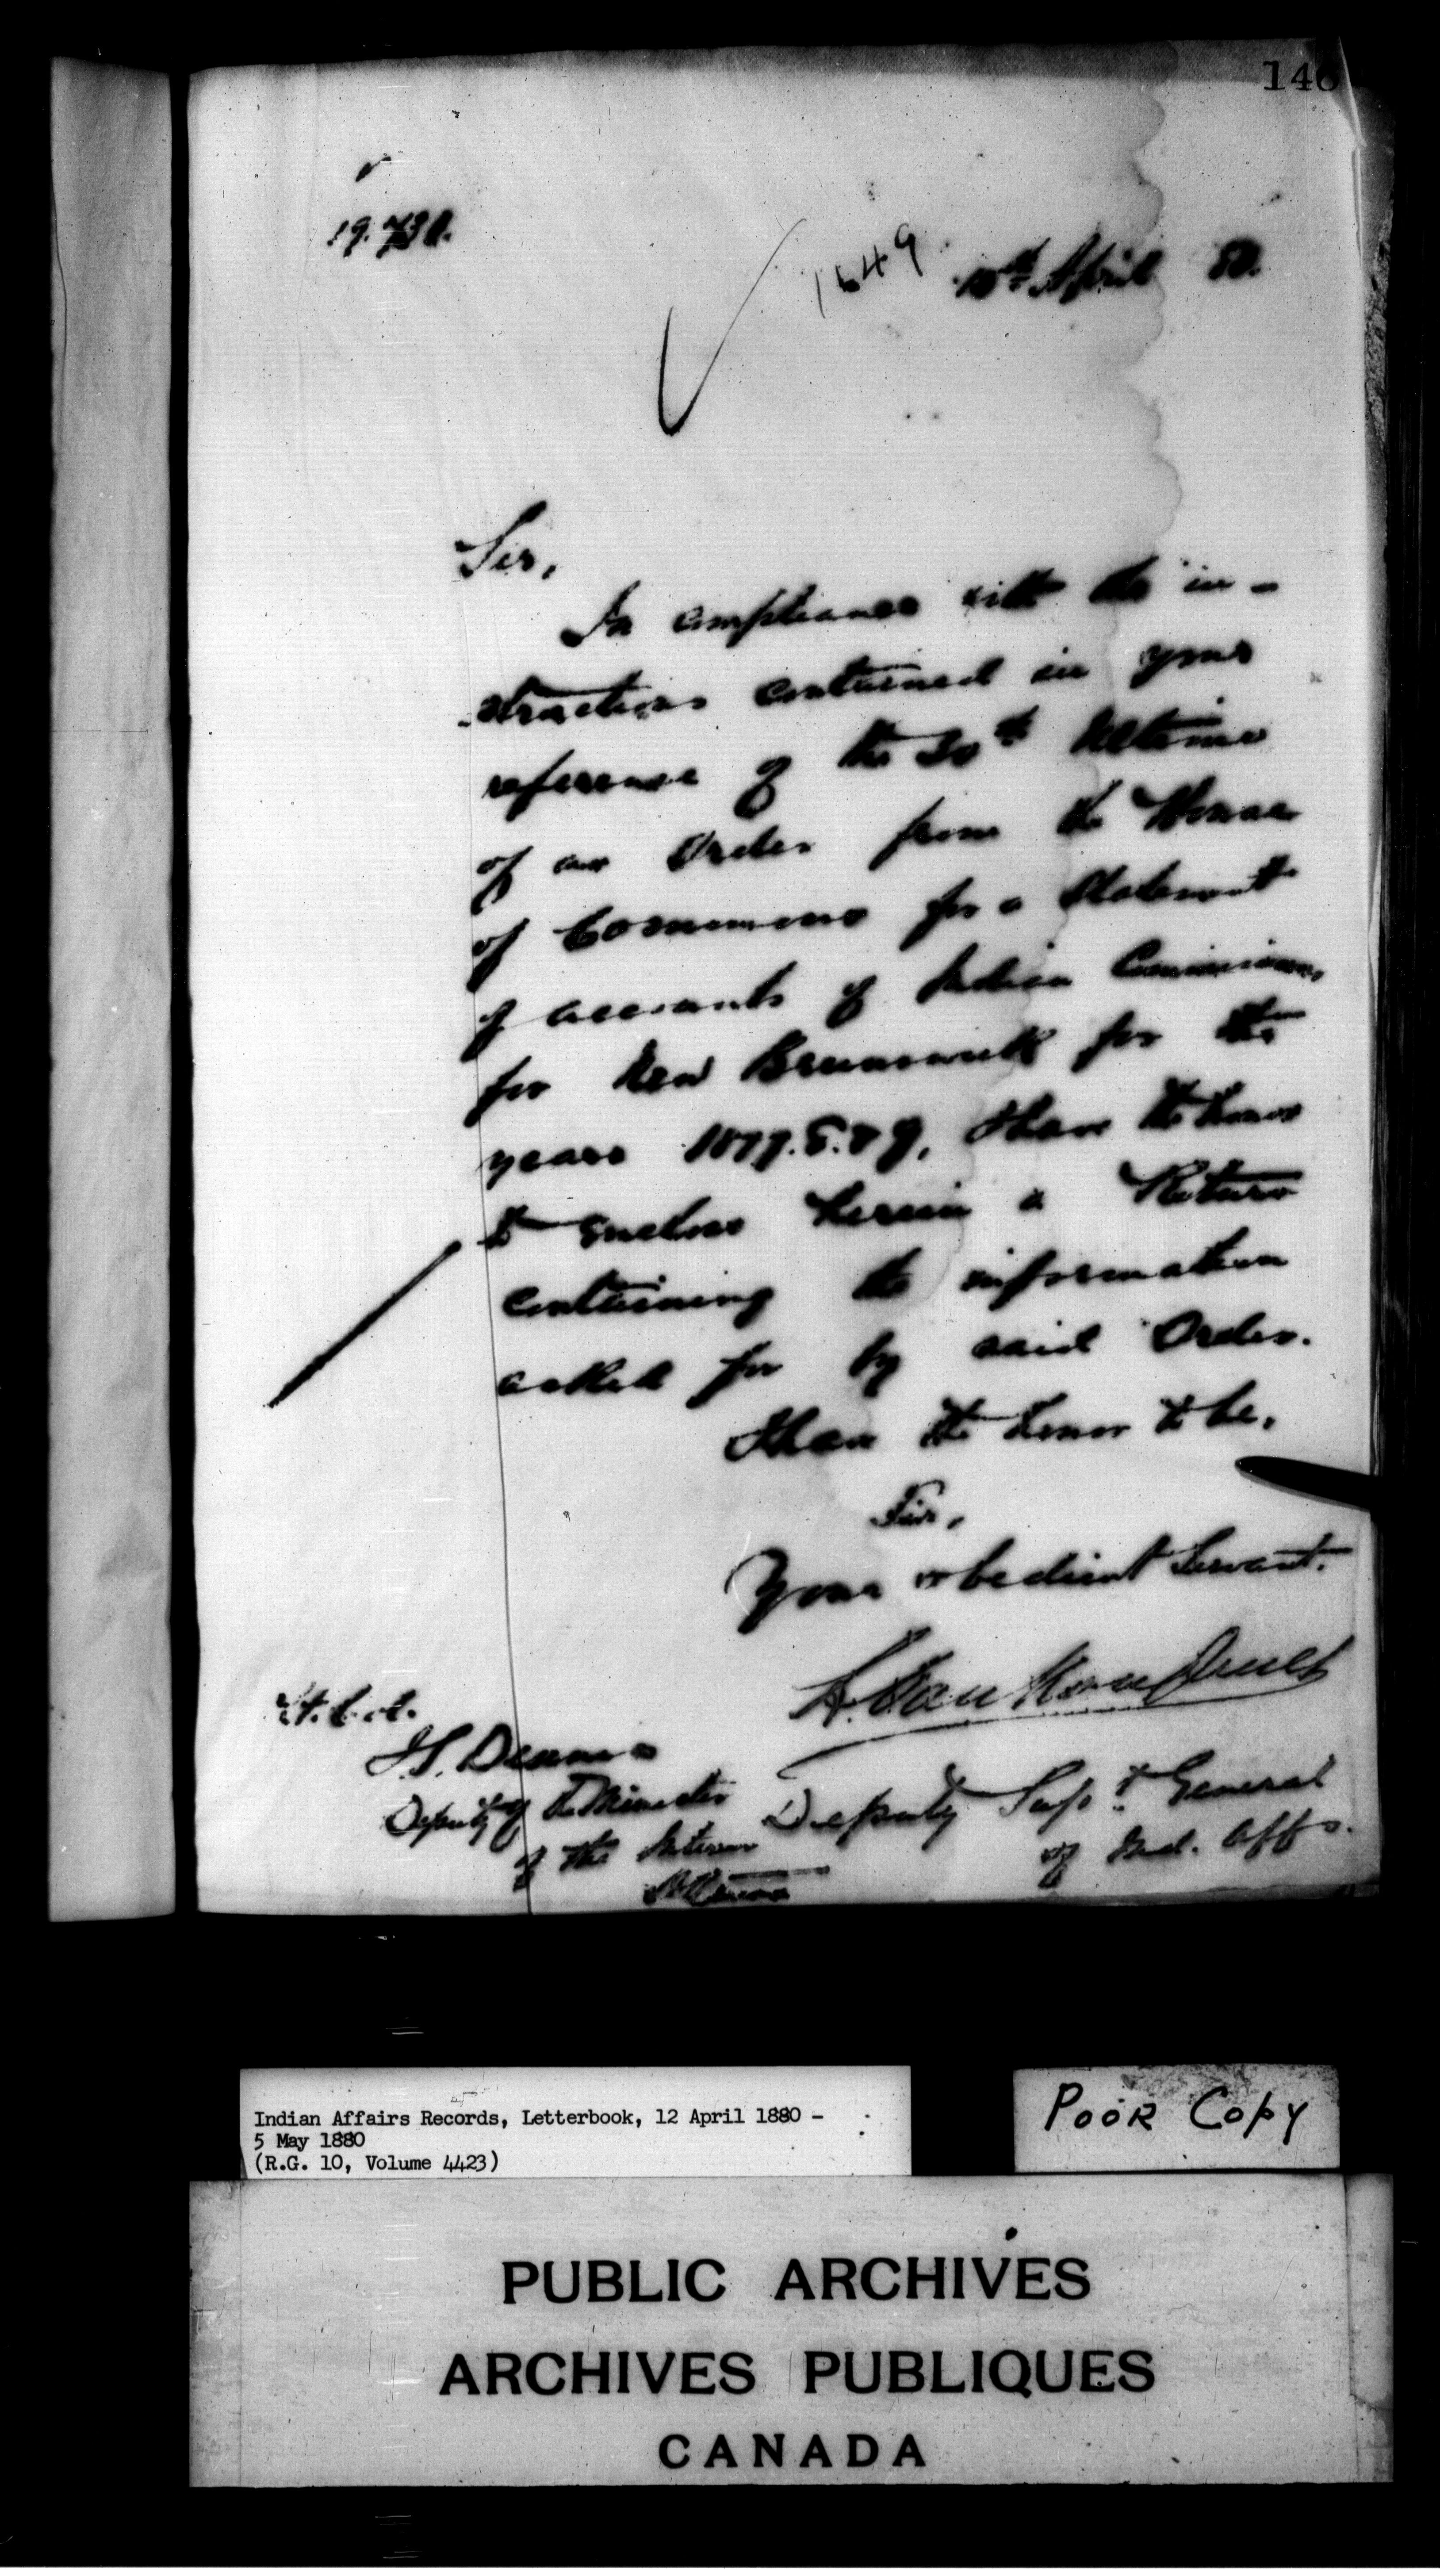 146
19.730.
1649
April 80.
Sir,
In compliance with the in-
structions contained in your
reference of the 30th Ultimo
of an Order from the House
of Commons for a Statement
of accounts of Indian Commissioner
for New Brunswick for the
years 1877.8.&9, I have the honor
to enclose herein a Return
containing the information
asked for by said Order.
I have the honor to be,
Sir,
Your obedient Servant.
L. VanKoughnet
Deputy Supt. General
of Ind. Affs.
J.S. Dennis
Deputy of the Minister
of the Interior
Indian Affairs Records, Letterbook, 12 April 1880 -
5 May 1880
(R.G. 10, Volume 4423)
POOR COPY
PUBLIC ARCHIVES
ARCHIVES PUBLIQUES
CANADA